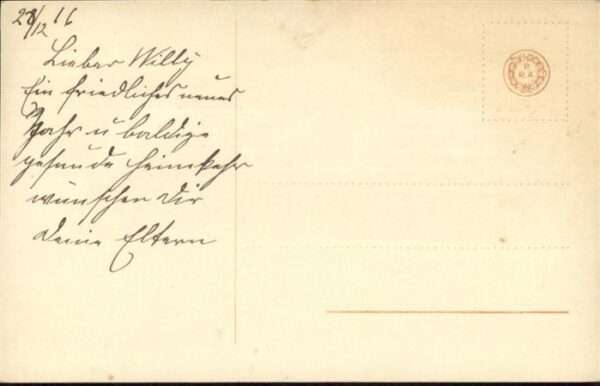 28/12 16
Lieber Willy
Ein friedliches neues
Jahr u baldige
gesunde Heimkehr
wünschen Dir
Deine Eltern